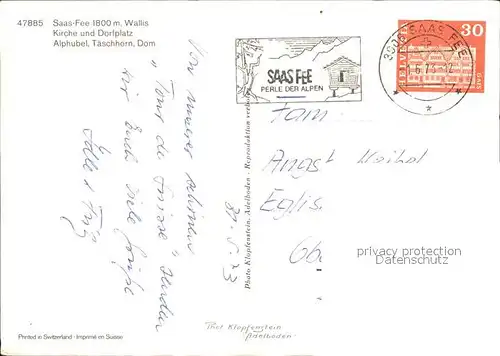 47885 Saas-Fee 1800 m, Wallis
Kirche und Dorfplatz
Alphubel, Täschhorn, Dom
Von unserer schönen
"Tour de Suisse" senden
wir Euch viele Grüsse
31. 5. 73
Photo Klopfenstein, Adelboden - Reproduktion verboten
SAAS FEE
PERLE DER ALPEN
SAAS FEE
HELVETIA
30
Fam.
Angst
Eglis
privacy protection
watermark
Phot Klopfenstein
Adelboden
Printed in Switzerland - Imprimé en Suisse